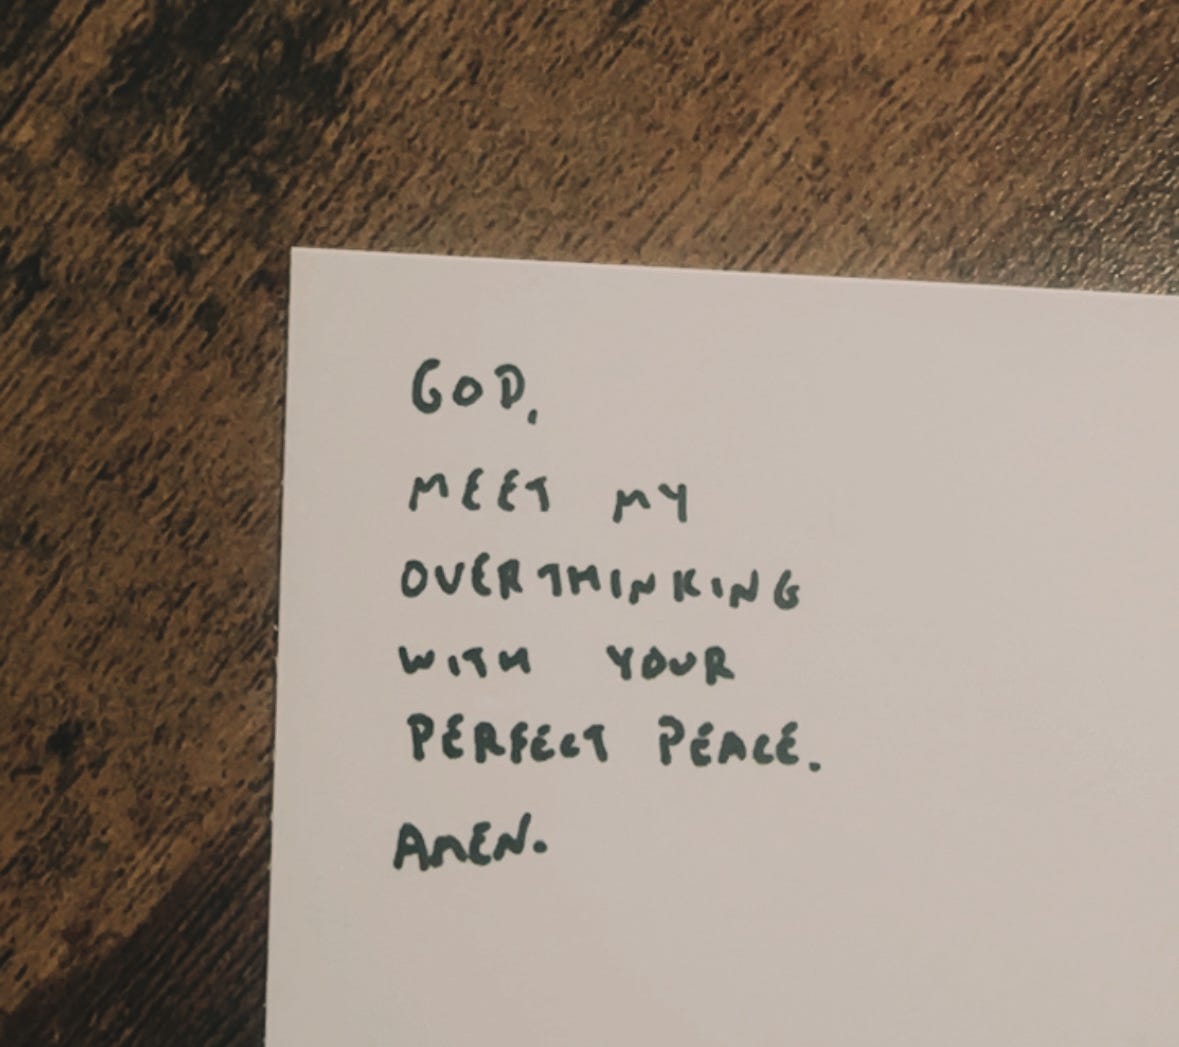 GOD,
MEET MY
OVERTHINKING
WITH YOUR
PERFECT PEACE.
AMEN.